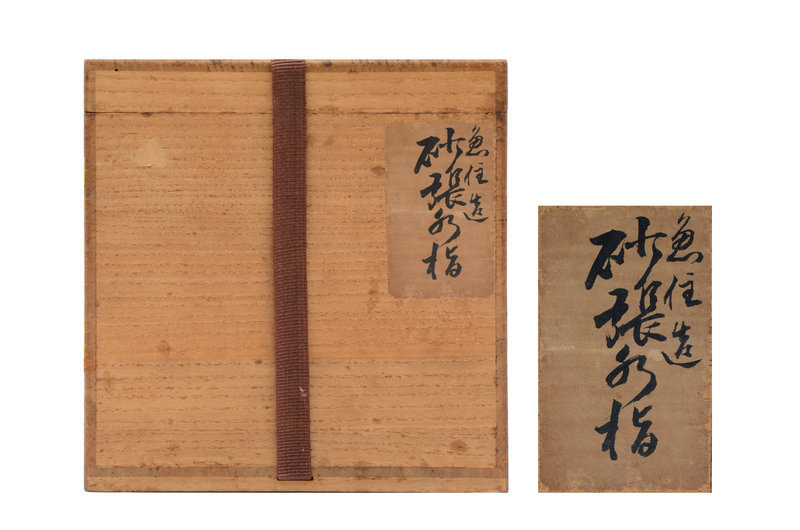 魚住造
砂張水指
魚住造
砂張水指